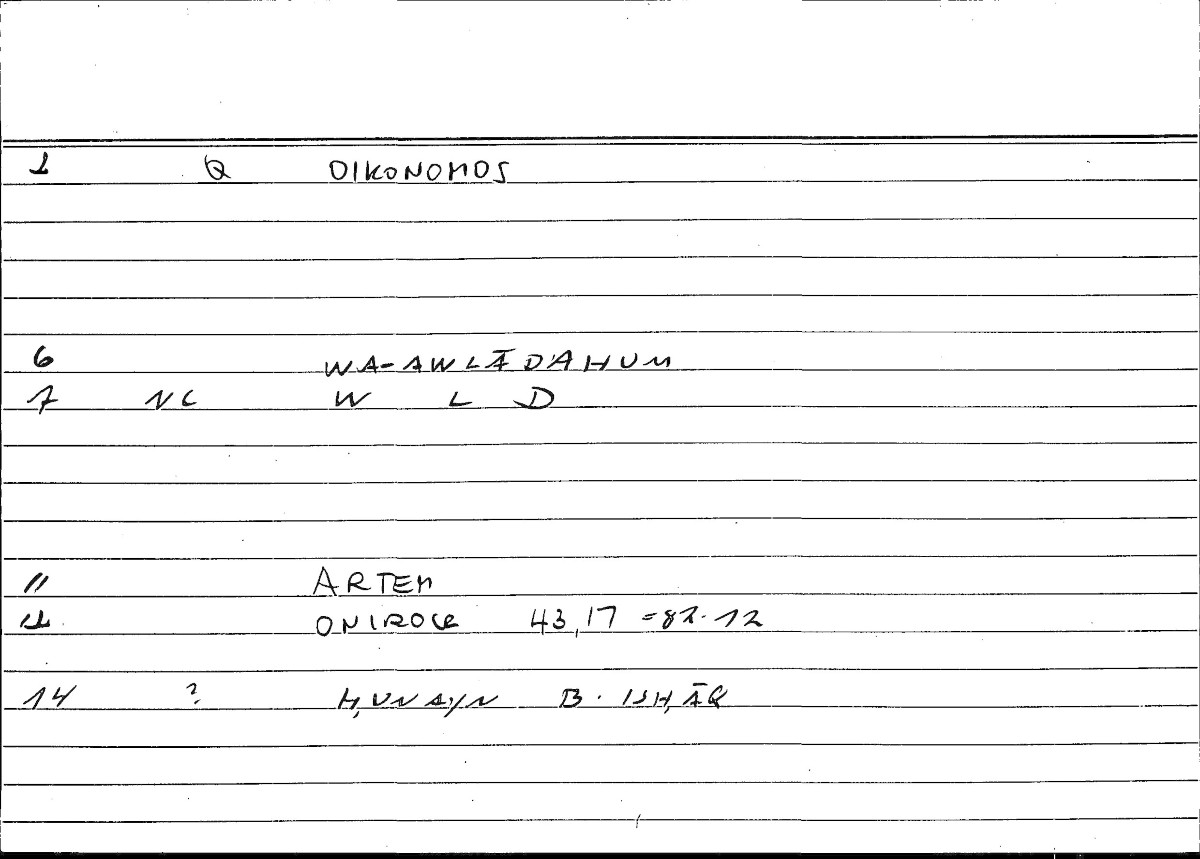 1 Q OIKONOMOS
6 WA-AWLĀDAHUM
7 NC W L D
11 ARTEM
12 ONIROCR 43,17 =82.12
14 ? ḤUNAYN B. ISḤĀQ